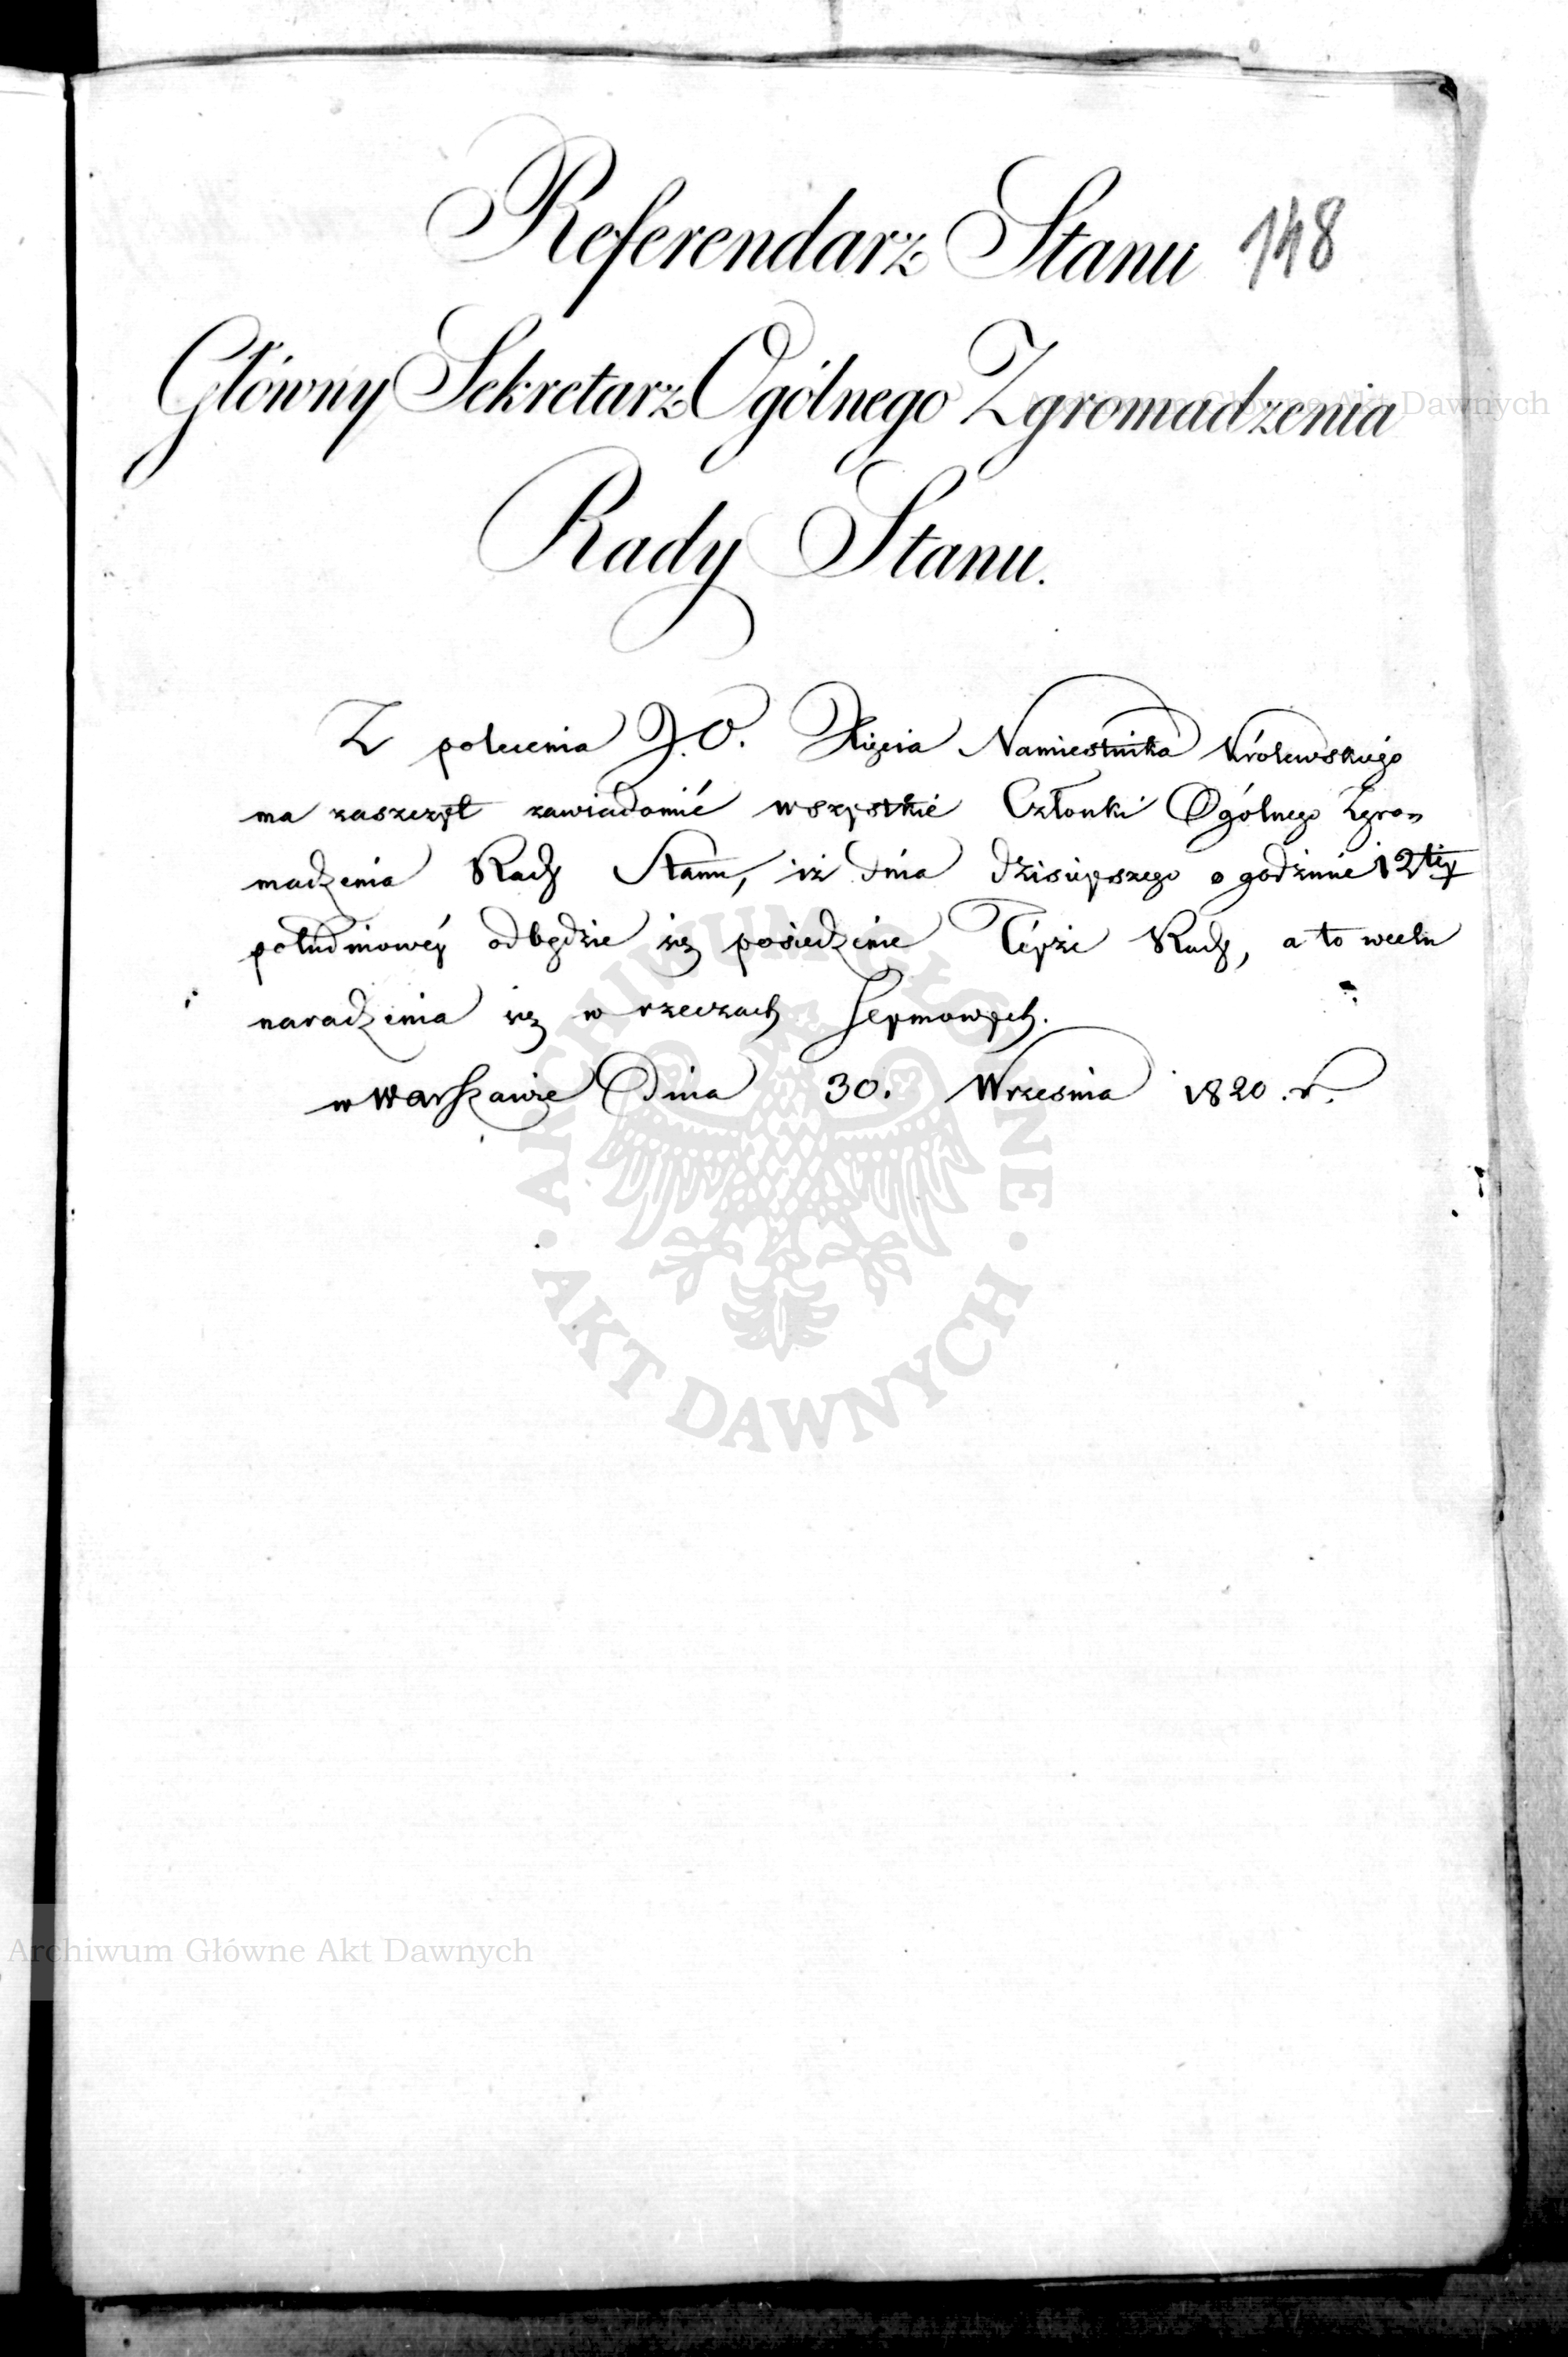 Referendarz Stanu 148
Główny Sekretarz Ogólnego Zgromadzenia
Rady Stanu.
Z polecenia J.O. Xięcia Namiestnika Królewskiégo
ma zaszczyt zawiadomić wszystkie Członki Ogólnego Zgro=
madzenia Rady Stanu, iż dnia dzisieyszego o godzinie 12téy
południowéy odbędzie się posiedzenie Téyże Rady, a to wcelu
naradzenia się w rzeczach Seymowych.
w Warszawie Dnia 30. Września 1820. r.
Archiwum Główne Akt Dawnych
ARCHIWUM GŁÓWNE
AKT DAWNYCH
Archiwum Główne Akt Dawnych